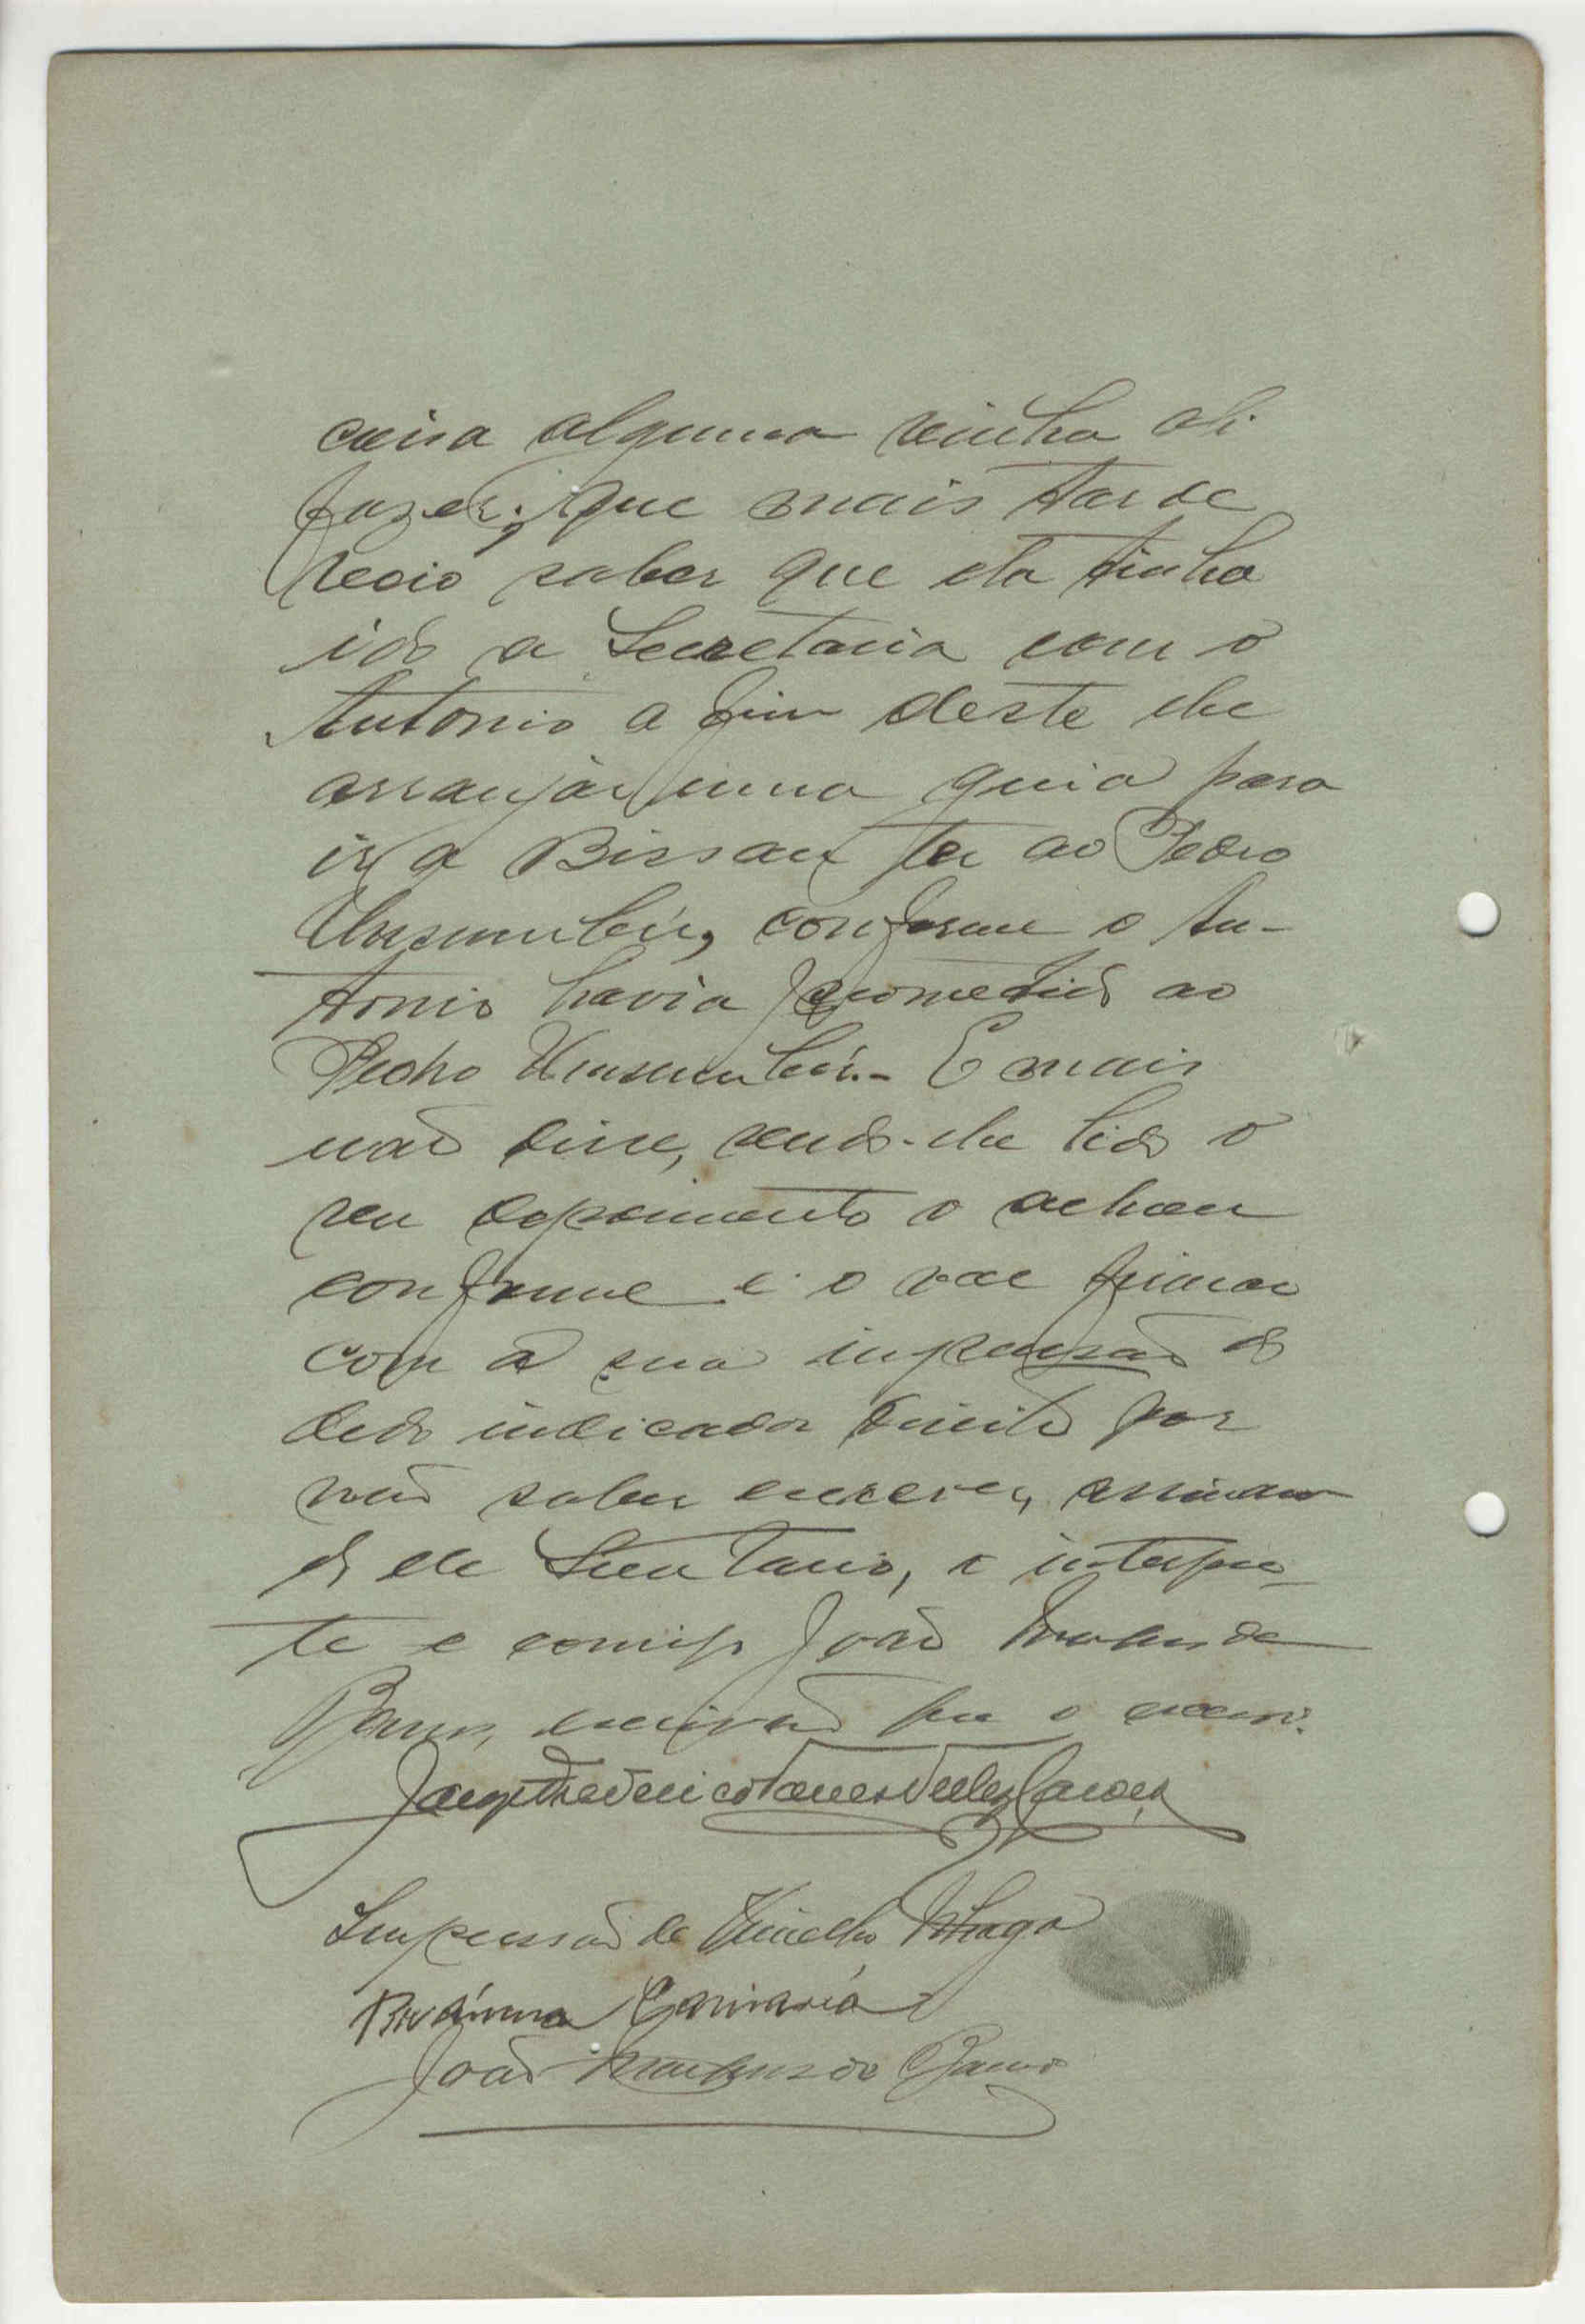 coisa alguma vinha ali
fazer; que mais tarde
veio saber que ela tinha
ido a Secretaria com o
Antonio a fim deste lhe
arranjar uma guia para
ir a Bissau ter ao Pedro
conforme o An-
tonio havia promettido ao
Pedro E mais
não disse, sendo-lhe lido o
seu depoimento o achou
conforme e o vae firmar
com a sua impressão do
dedo indicador direito por
não saber escrever, assinan
do ele Secretario, o interpre-
te e comigo João
escrivão que o escrevi.
Jorge Frederico Torres Velez Caroço
Impressão de
João